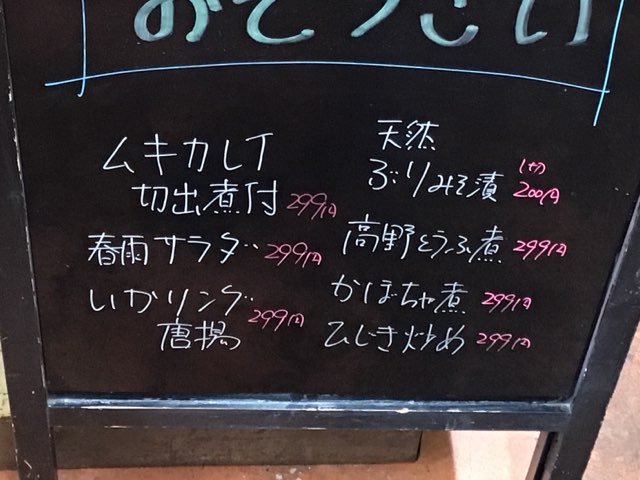 おそうざい
ムキカレイ
切出煮付 299円
春雨サラダ 299円
いかリング
唐揚 299円
天然
ぶりみそ漬 (1切) 200円
高野とうふ煮 299円
かぼちゃ煮 299円
ひじき炒め 299円